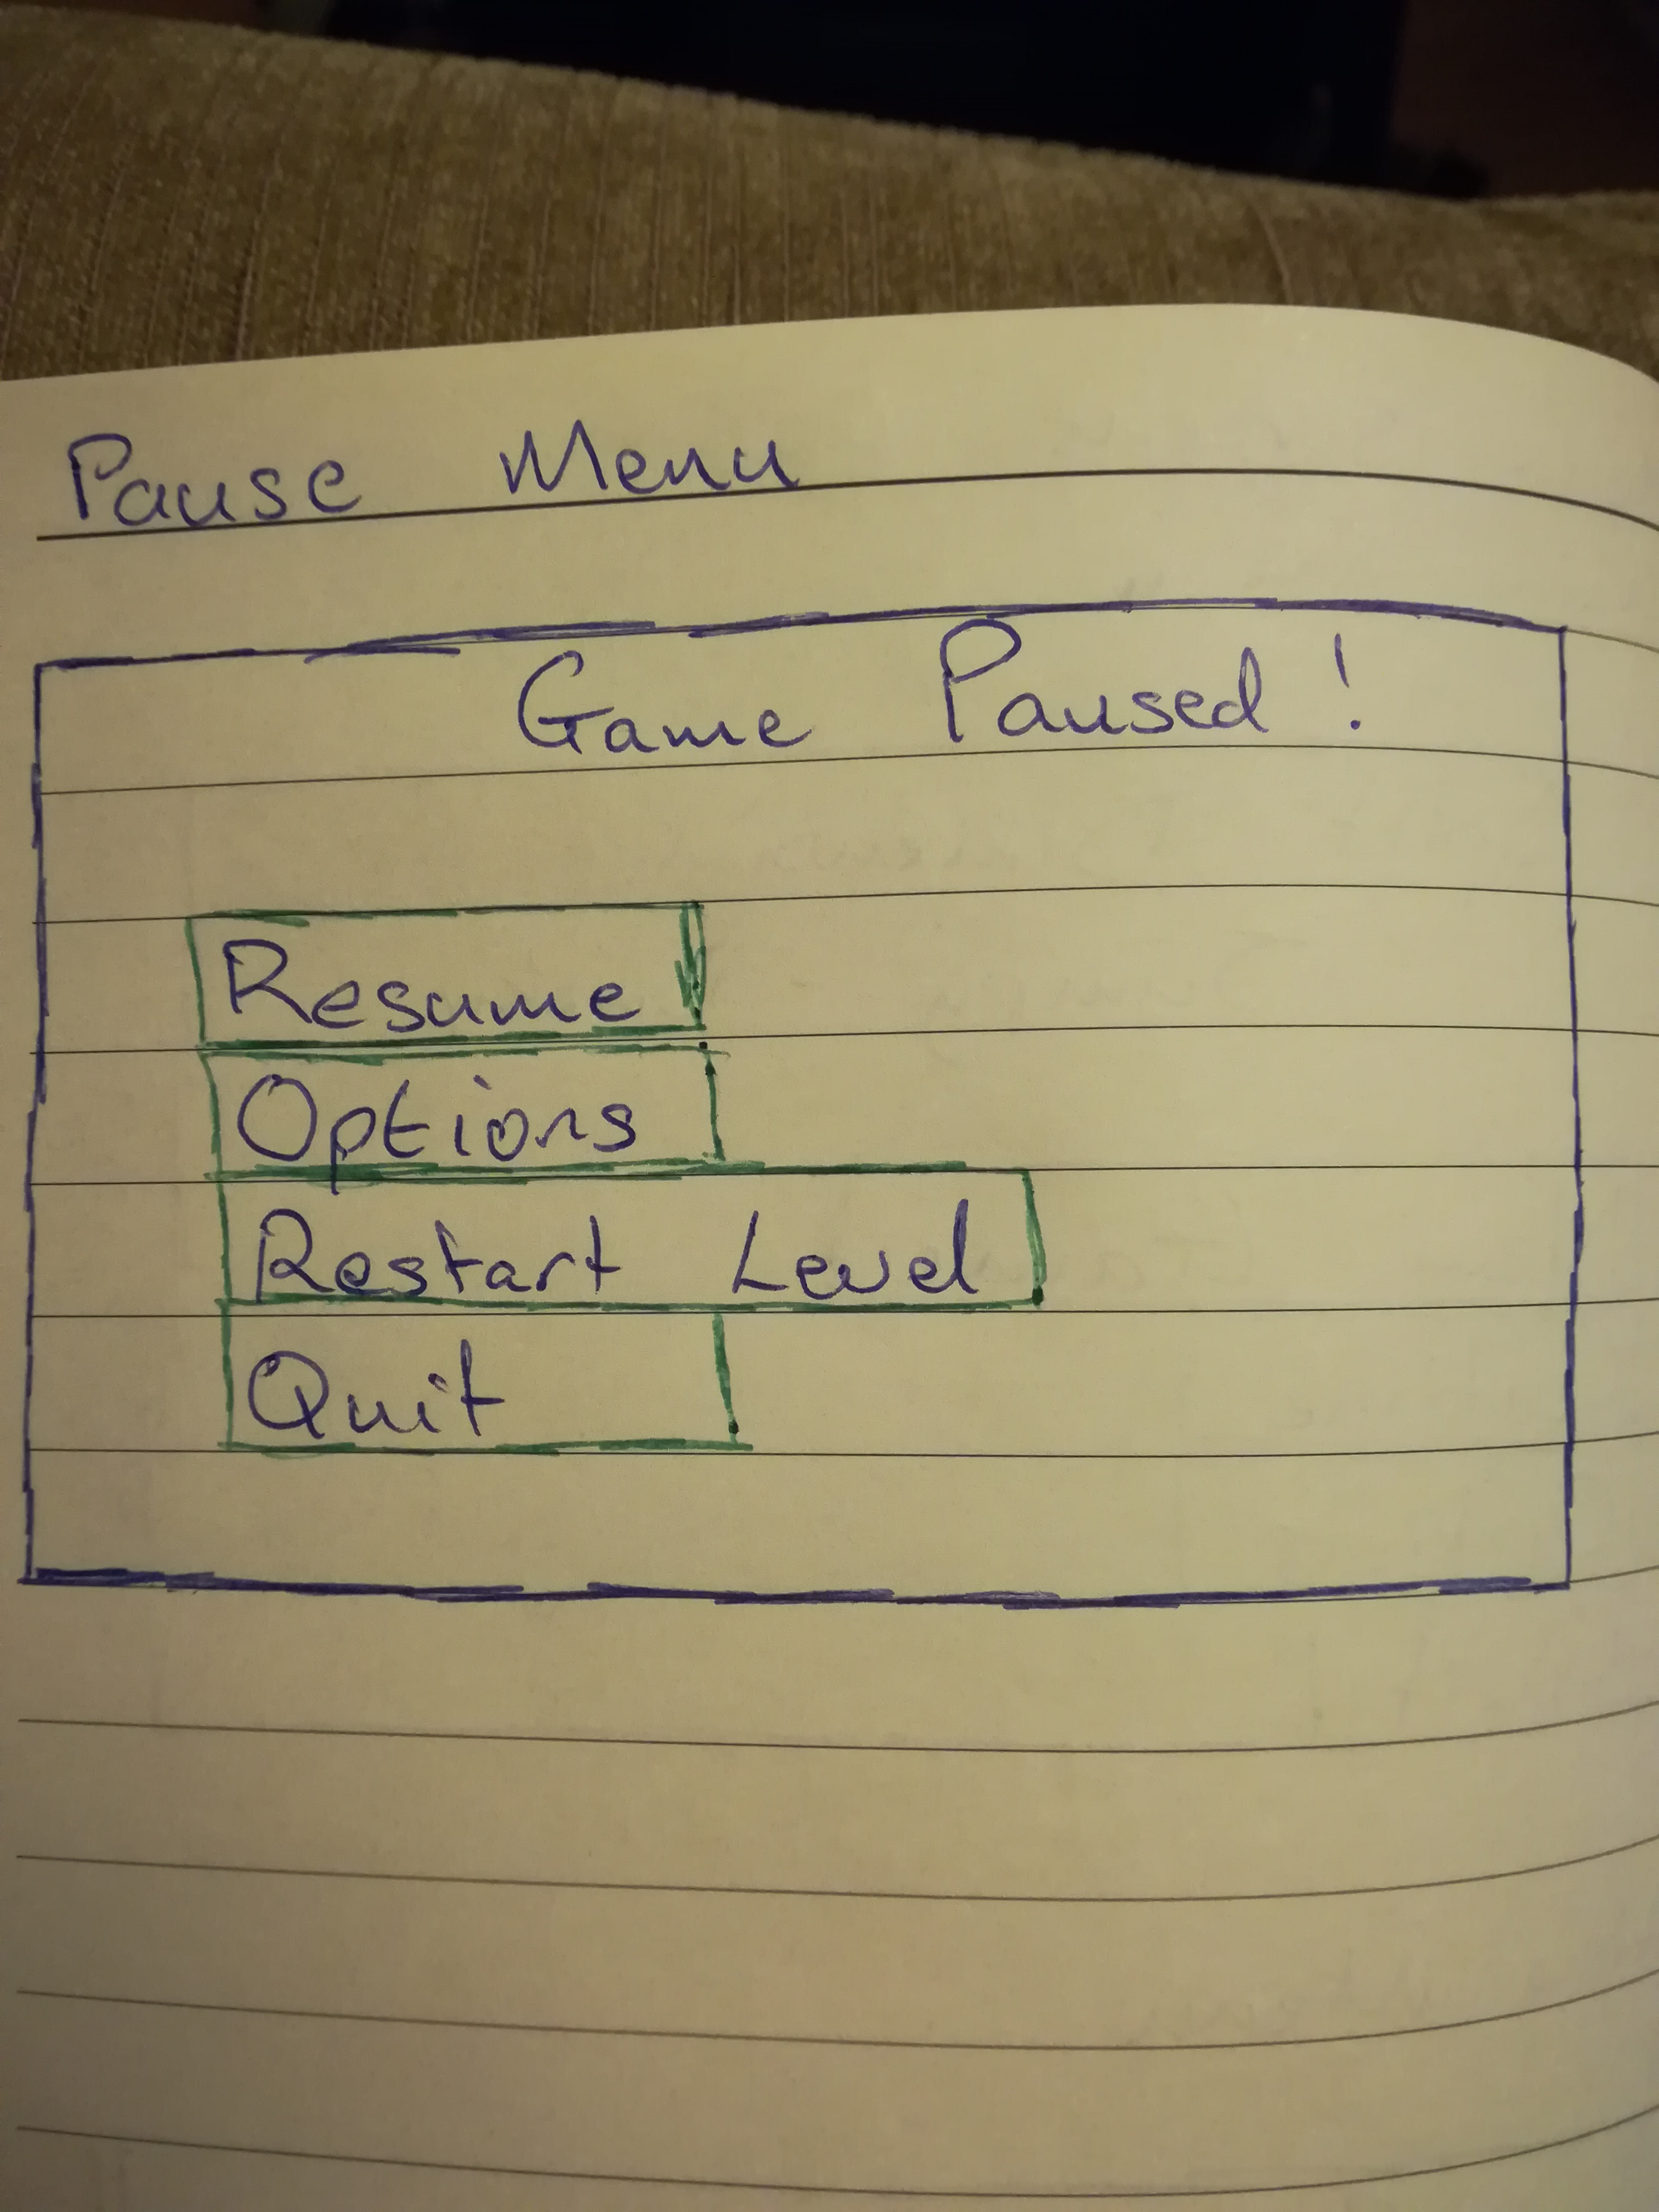 Pause Menu
Game Paused!
Resume
Options
Restart Level
Quit